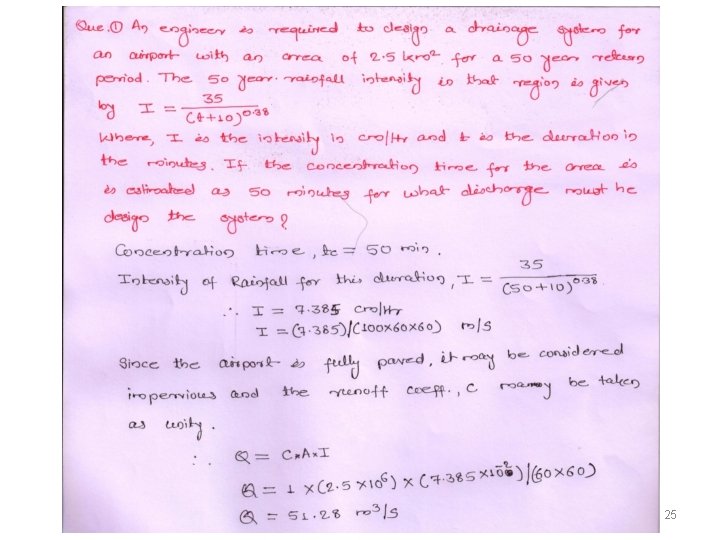 Que.① An engineer is required to design a drainage system for
an airport with an area of 2.5 km² for a 50 year return
period. The 50 year rainfall intensity in that region is given
by I = 35/(t+10)^0.38
Where, I is the intensity in cm/Hr and t is the duration in
the minutes. If the concentration time for the area is
is estimated as 50 minutes for what discharge must he
design the system?
Concentration time, tc = 50 min.
Intensity of Rainfall for this duration, I = 35/(50+10)^0.38.
∴ I = 7.385 cm/Hr
I = (7.385)/(100x60x60) m/s
Since the airport is fully paved, it may be considered
impervious and the runoff coeff., C may be taken
as unity.
∴ Q = C×A×I
Q = 1 × (2.5 ×10⁶) × (7.385×10⁻²)/(60×60)
Q = 51.28 m³/s
25